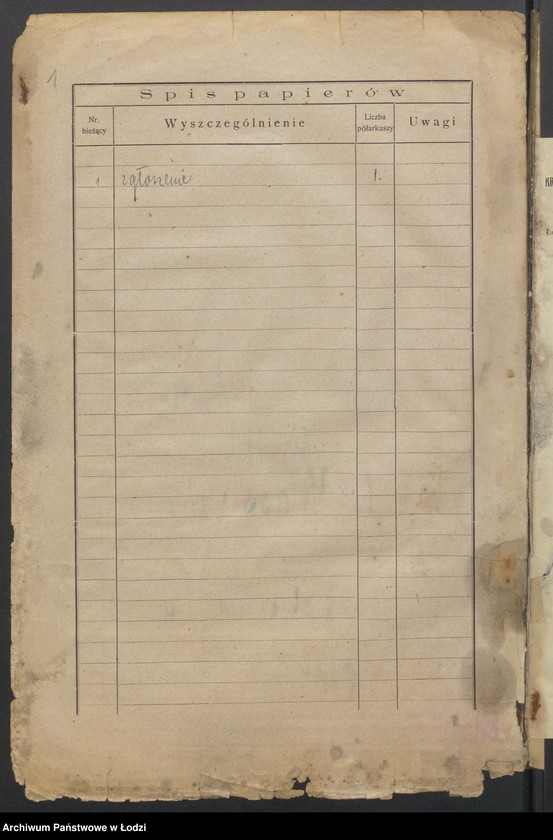 1
Spis papierów
Nr. bieżący Wyszczególnienie Liczba półarkuszy Uwagi
1 zgłoszenie 1.
Archiwum Państwowe w Łodzi